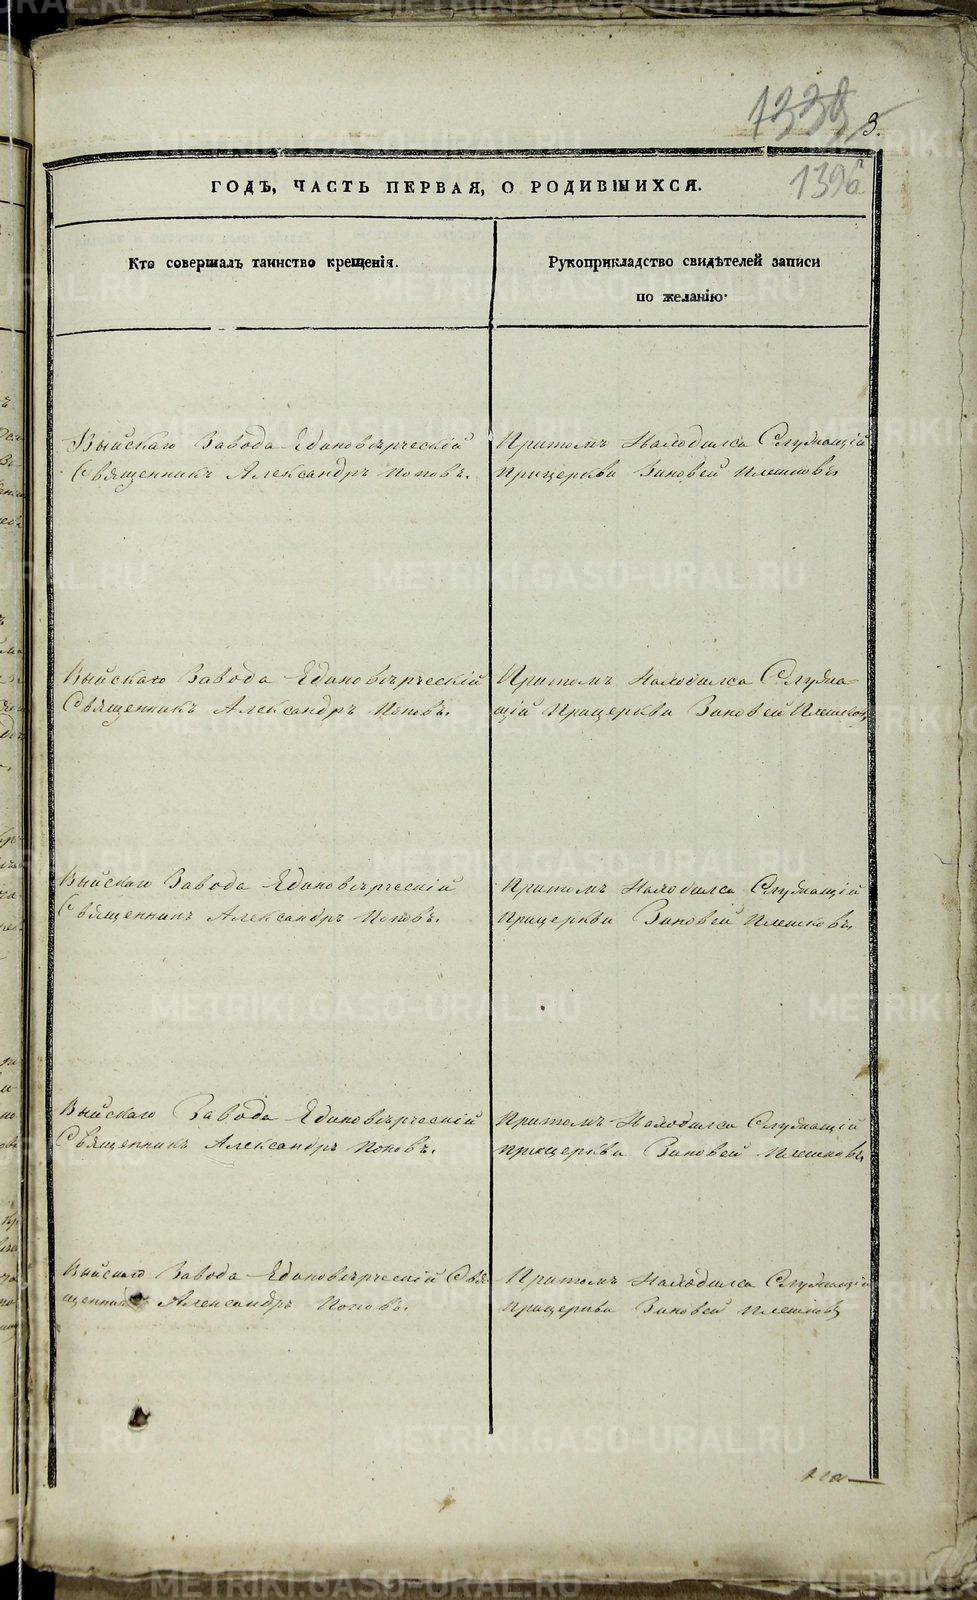 1339
3.
1396
ГОДЪ, ЧАСТЬ ПЕРВАЯ, О РОДИВШИХСЯ.
Кто совершалъ таинство крещенія.
Рукоприкладство свидѣтелей записи
по желанію.
Выйскаго Завода Единовѣрческій
Священникъ Александръ Поповъ.
Притомъ Находился Служащій
Прицеркви Зиновей Плешковъ
Выйскаго Завода Единовѣрческій
Священникъ Александръ Поповъ.
Притомъ Находился Служа-
щій Прицеркви Зиновей Плешковъ
Выйскаго Завода Единовѣрческій
Священникъ Александръ Поповъ.
Притомъ Находился Служащій
Прицеркви Зиновей Плешковъ
Выйскаго Завода Единовѣрческій
Священникъ Александръ Поповъ.
Притомъ Находился Служащій
прицеркви Зиновей Плешковъ
Выйскаго Завода Единовѣрческій Свя
щенникъ Александръ Поповъ.
Притомъ Находился Служащій
Прицеркви Зиновей Плешковъ
METRIKI.GASO-URAL.RU